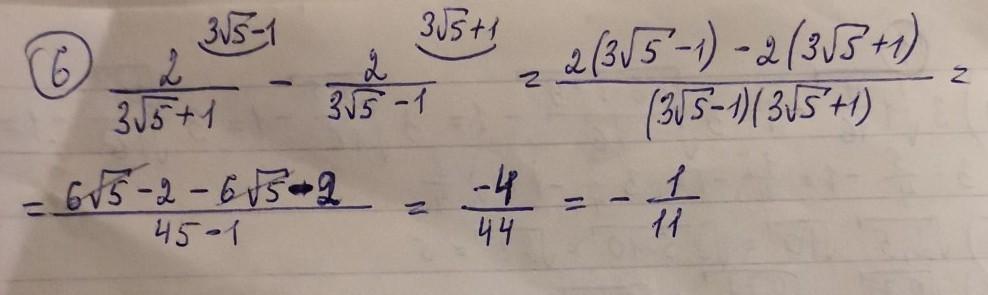 3√5-1 3√5+1
6 2/(3√5+1) - 2/(3√5-1) = (2(3√5-1)-2(3√5+1))/((3√5-1)(3√5+1)) =
= (6√5-2-6√5-2)/(45-1) = -4/44 = -1/11